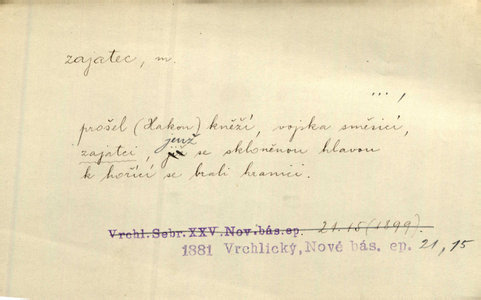 zajatec, m.
...,
prošel (Hakon) kněží, vojska směsicí,
zajatci, jenž se skloněnou hlavou
k hořící se brali hranici.
Vrchl. Sebr. XXV. Nov. bás. ep. 21.15 (1899)
1881 Vrchlický, Nové bás. ep. 21, 15